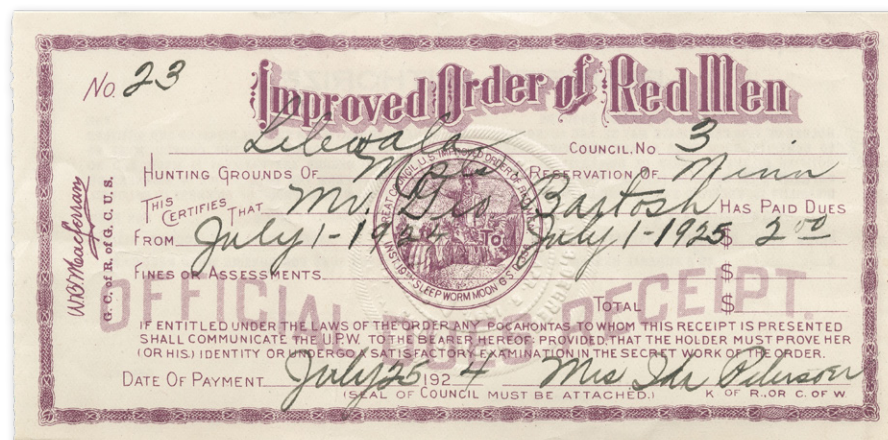 No. 23
Improved Order of Red Men
COUNCIL. No 3
HUNTING GROUNDS OF Mpls RESERVATION OF Minn
THIS CERTIFIES THAT Mr. Geo Bartosh HAS PAID DUES
FROM July 1-1924 TO July 1-1925 $ 2 00
FINES OR ASSESSMENTS $
OFFICIAL DUES RECEIPT.
TOTAL $
IF ENTITLED UNDER THE LAWS OF THE ORDER ANY POCAHONTAS TO WHOM THIS RECEIPT IS PRESENTED
SHALL COMMUNICATE THE U.P.W. TO THE BEARER HEREOF; PROVIDED, THAT THE HOLDER MUST PROVE HER
(OR HIS) IDENTITY OR UNDERGO A SATISFACTORY EXAMINATION IN THE SECRET WORK OF THE ORDER.
DATE OF PAYMENT July 25 1924 Mrs Ida Peterson
(SEAL OF COUNCIL MUST BE ATTACHED.) K OF R., OR C. OF W
G. C. of R. of G. C. U. S.
GREAT COUNCIL U.S. IMPROVED ORDER OF RED MEN
SLEEP WORM MOON G.S.D.